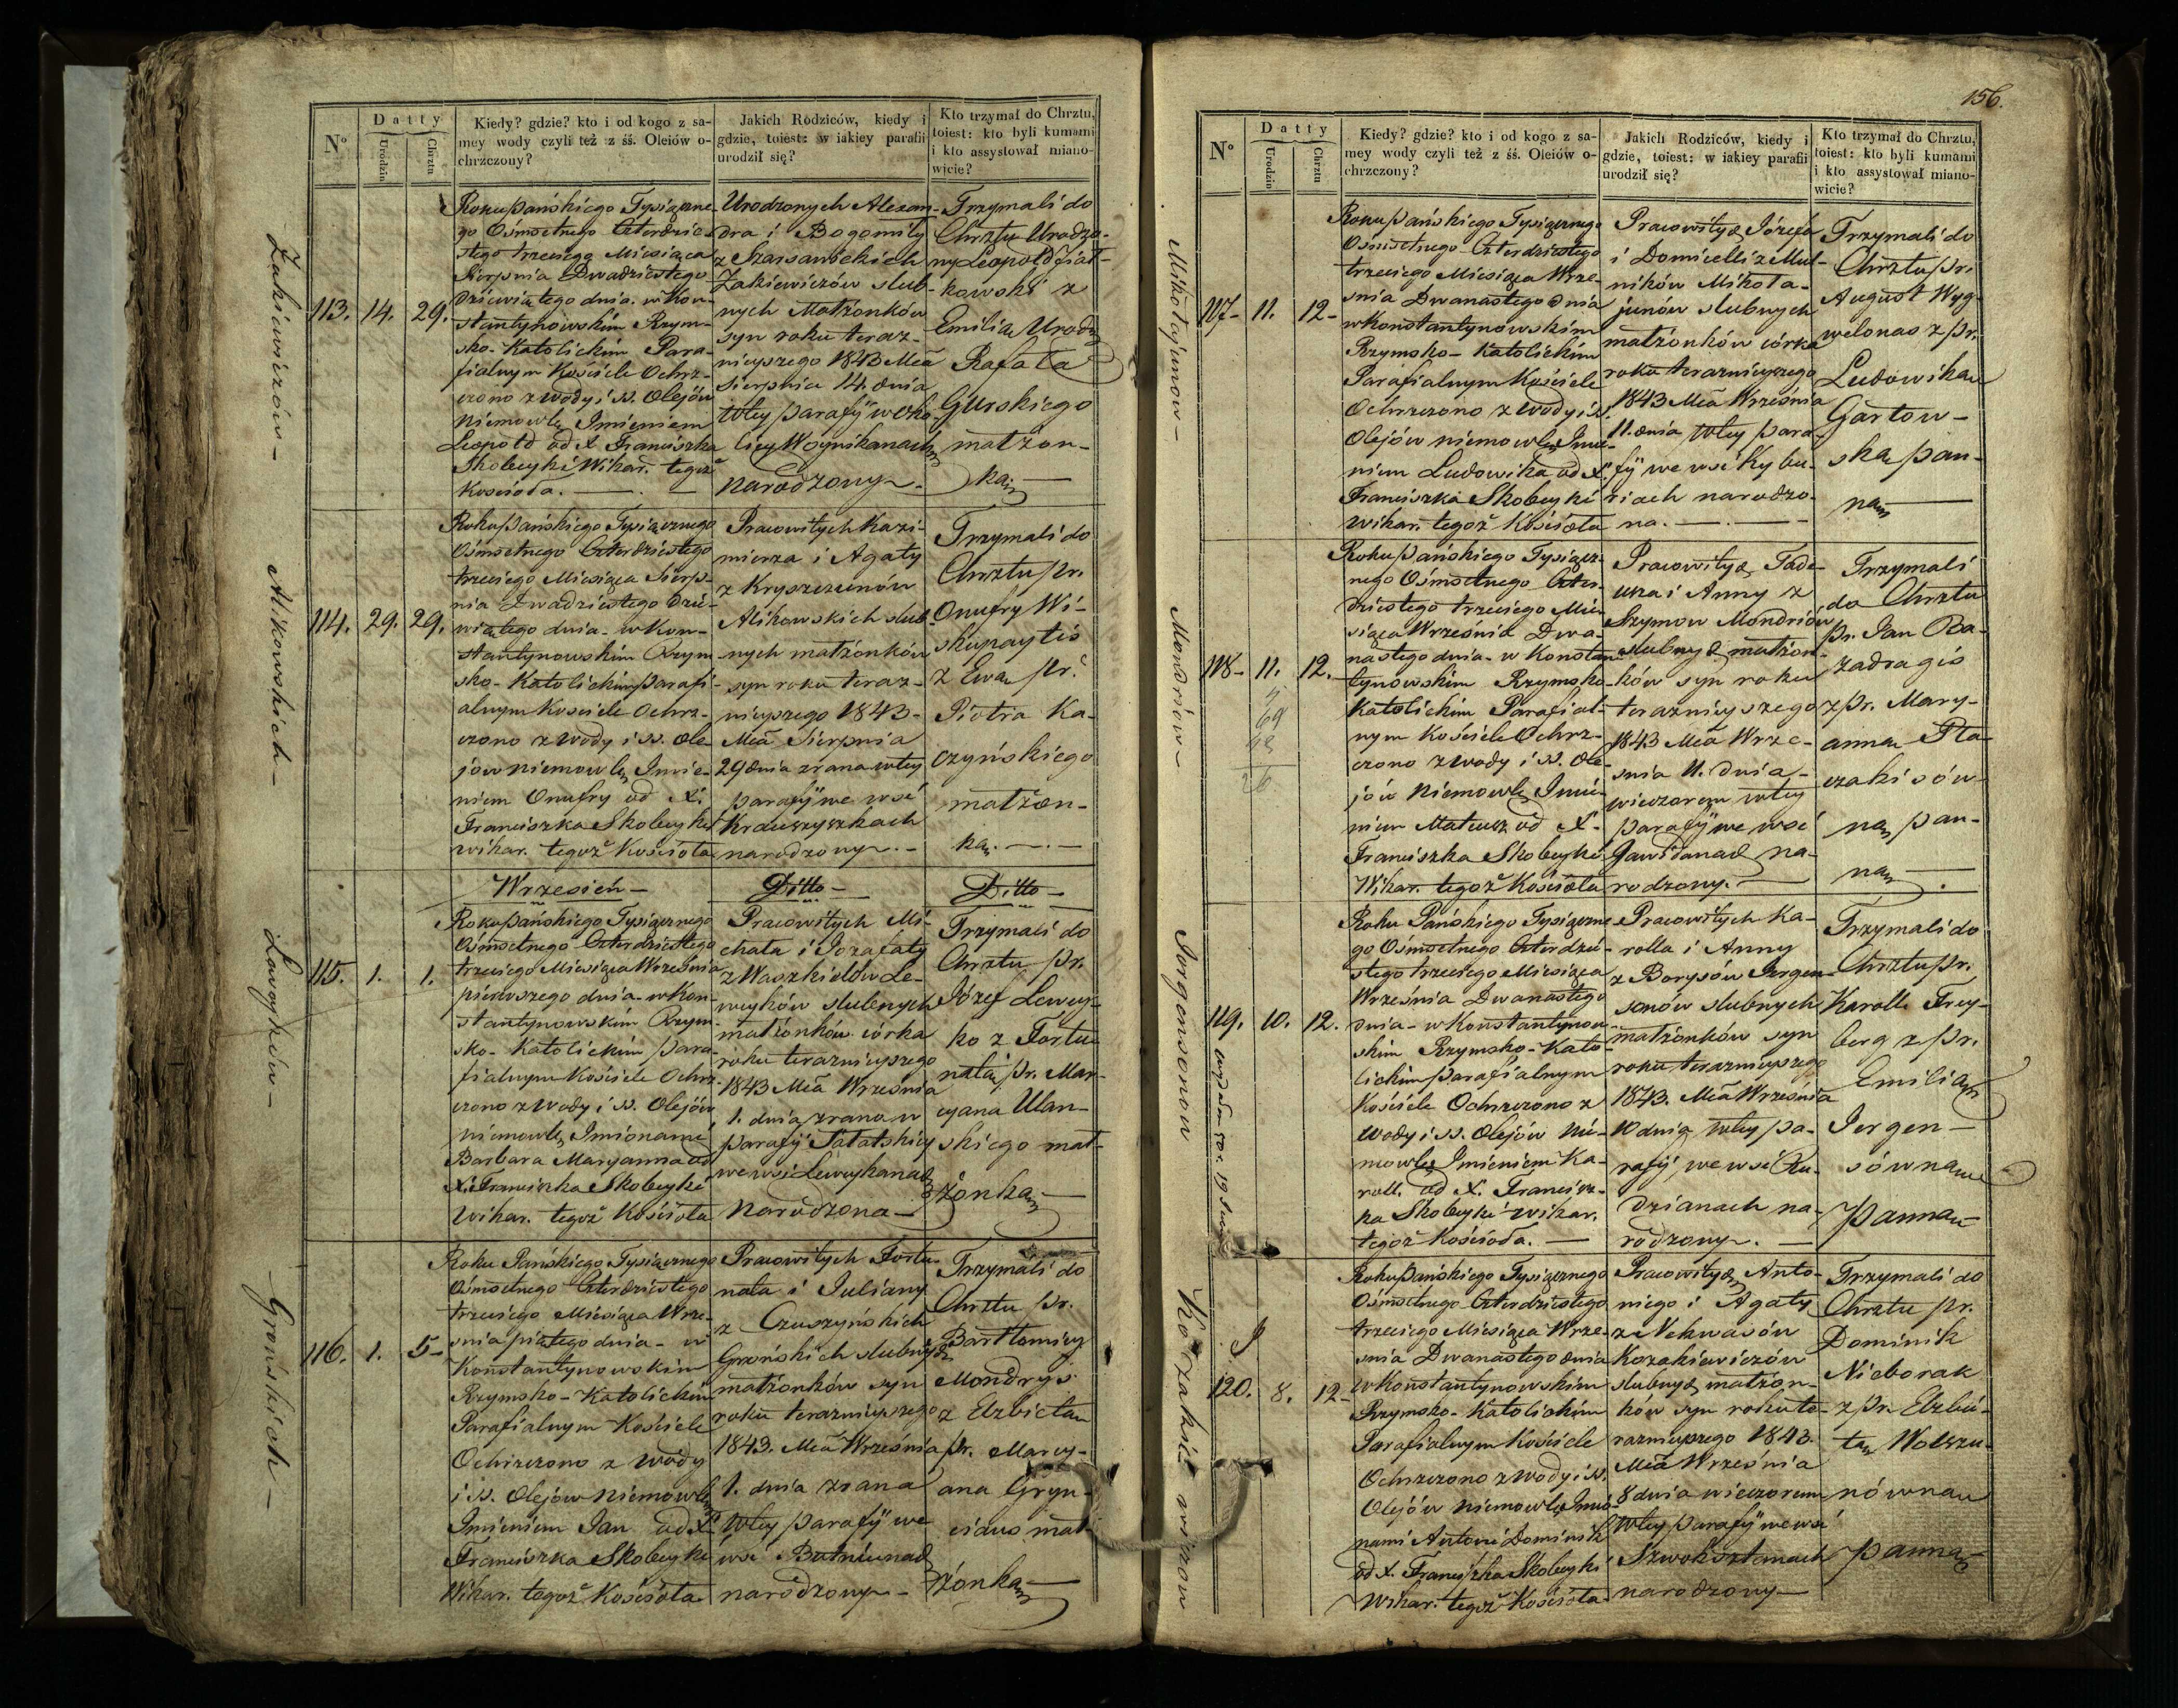 156.
N°
Datty
Urodzin
Chrztu
Kiedy? gdzie? kto i od kogo z sa-
mey wody czyli też z śś. Oleiów o-
chrzczony?
Jakich Rodziców, kiedy i
gdzie, toiest: w iakiey parafii
urodził się?
Kto trzymał do Chrztu,
toiest: kto byli kumami
i kto assystował miano-
wicie?
Zakiewiczów -
113. 14. 29.
Roku Pańskiego Tysiączne-
go Ośmsetnego Czterdzie-
stego trzeciego Miesiąca
Sierpnia Dwadziestego
dziewiątego dnia. w Kon-
stantynowskim Rzym-
sko-Katolickim Para-
fialnym Kościele Ochrz-
czono z wody i SS. Olejów
Niemowlę Imieniem
Leopold od X. Franciszka
Skobeyki Wikar. tegoż
Kościoła.
Urodzonych Alexan-
dra i Bogomiły
z
Zakiewiczów ślub-
nych Małżonków
syn roku teraz-
nieyszego 1843 Mca
Sierpnia 14. dnia
w tey parafij w oko-
licy Woynikanach
narodzony.
Trzymali do
Chrztu Urodzo-
ny Leopold Fiał-
kowski z
Emilią Urodz.
Rafała
Gurskiego
małżon-
ką
Alikowskich -
114. 29. 29.
Roku Pańskiego Tysiącznego
Ośmsetnego Czterdziestego
trzeciego Miesiąca Sierp-
nia Dwadziestego dzie-
wiątego dnia - w Kon-
stantynowskim Rzym-
sko-Katolickim parafi-
alnym Kościele Ochrz-
czono z wody i SS. Ole-
jów niemowlę Imie-
niem Onufry od X.
Franciszka Skobeyki
wikar. tegoż Kościoła
Pracowitych Kazi-
mierza i Agaty
z Kryszczunów
Alikowskich ślub-
nych małżonków
syn roku teraz-
nieyszego 1843-
Mca Sierpnia
29 dnia zrana w tey
parafij we wsi
Krauszyszkach
narodzony. -
Trzymali do
Chrztu pr.
Onufry Wi-
skupaytis
z Ewą pr.
Piotra Ka-
czyńskiego
małżon-
ką. - . -
Wrzesień -
Ditto -
Ditto -
Lawyków -
115. 1. 1.
Roku Pańskiego Tysiącznego
Ośmsetnego Czterdziestego
trzeciego Miesiąca Września
pierwszego dnia - w Kon-
stantynowskim Rzym-
sko-Katolickim para-
fialnym Kościele Ochrz-
czono z wody i SS. Olejów
niemowlę Imionami
Barbara Maryanna od
X. Franciszka Skobeyki
Wikar. tegoż Kościoła
Pracowitych Mi-
chała i Jozafaty
z Waszkielów Le-
weyków ślubnych
małżonków córka
roku teraznieyszego
1843 Mca Września
1. dnia zrana w
parafij Tatarskiey
we wsi Leweykanach
Narodzona -
Trzymali do
Chrztu pr.
Józef Lewey-
ko z Fortu-
natą pr. Mar-
cyana Ulan-
skiego mał-
żonką -
Grońskich -
116. 1. 5-
Roku Pańskiego Tysiącznego
Ośmsetnego Czterdziestego
trzeciego Miesiąca Wrze-
śnia piątego dnia - w
Konstantynowskim
Rzymsko-Katolickim
Parafialnym Kościele
Ochrzczono z wody
i SS. Olejów niemowlę
Imieniem Jan od X.
Franciszka Skobeyki
Wikar. tegoż Kościoła
Pracowitych Fortu-
nata i Juliany
z Czuszyńskich
Grońskich ślubnych
małżonków syn
roku teraznieyszego
1843. Mca Września
1. dnia zrana
w tey parafij we
wsi Butniunach
narodzony -
Trzymali do
Chrztu pr.
Bartłomiey
Mondrys
z Elżbietą
pr. Marcy-
ana Gryn-
ciduo mał-
żonką -
N°
Datty
Urodzin
Chrztu
Kiedy? gdzie? kto i od kogo z sa-
mey wody czyli też z śś. Oleiów o-
chrzczony?
Jakich Rodziców, kiedy i
gdzie, toiest: w iakiey parafii
urodził się?
Kto trzymał do Chrztu,
toiest: kto byli kumami
i kto assystował miano-
wicie?
Mikołajunow -
117- 11. 12-
Roku Pańskiego Tysiącznego
Ośmsetnego Czterdziestego
trzeciego Miesiąca Wrze-
śnia Dwanastego dnia
w Konstantynowskim
Rzymsko-Katolickim
Parafialnym Kościele
Ochrzczono z wody i SS.
Olejów niemowlę Imie-
niem Ludowika od X.
Franciszka Skobeyki
wikar. tegoż Kościoła
Pracowitych Józefa
i Domicelli z Mul-
ników Mikoła-
junów ślubnych
małżonków córka
roku teraznieyszego
1843 Mca Września
11. dnia w tey para-
fij we wsi Kybu-
riach narodzo-
na. - . -
Trzymali do
Chrztu pr.
August Wyg-
welonas z pr.
Ludowiką
Gartow-
ską pan-
ną -
Mondriów -
118- 11. 12.
Roku Pańskiego Tysiącz-
nego Ośmsetnego Czter-
dziestego trzeciego Mie-
siąca Września Dwa-
nastego dnia - w Konstan-
tynowskim Rzymsko-
Katolickim Parafial-
nym Kościele Ochrz-
czono z wody i SS. Ole-
jów Niemowlę Imie-
niem Mateusz od X.
Franciszka Skobeyki
Wikar. tegoż Kościoła
Pracowitych Tade-
usza i Anny z
Szymow Mondriów
ślubnych małżon-
ków syn roku
teraznieyszego
1843 Mca Wrze-
śnia 11. dnia -
wieczorem w tey
parafij we wsi
Gawidanach na-
rodzony. -
Trzymali
do Chrztu
pr. Jan Ra-
zadragis
z pr. Mary-
anną Pla-
czakisów-
ną pan-
ną -
Jorgensonow
119. 10. 12.
Roku Pańskiego Tysiączne-
go Ośmsetnego Czterdzie-
stego trzeciego Miesiąca
Września Dwanastego
dnia - w Konstantynow-
skim Rzymsko-Kato-
lickim parafialnym
Kościele Ochrzczono z
wody i SS. Olejów nie-
mowlę Imieniem Ka-
roll. od X. Francisz-
ka Skobeyki wikar.
tegoż Kościoła. -
Pracowitych Ka-
rolla i Anny
z Borysów Jergen-
sonów ślubnych
małżonków syn
roku teraznieyszego
1843. Mca Września
10 dnia w tey pa-
rafij we wsi Ru-
dzianach na-
rodzony. -
Trzymali do
Chrztu pr.
Karoll Frey-
berg z pr.
Emilią
Jergen-
sówną
Panną -
Kozakiewiczow
120. 8. 12-
Roku Pańskiego Tysiącznego
Ośmsetnego Czterdziestego
trzeciego Miesiąca Wrze-
śnia Dwanastego dnia
w Konstantynowskim
Rzymsko-Katolickim
Parafialnym Kościele
Ochrzczono z wody i SS.
Olejów Niemowlę Imio-
nami Antoni Dominik
od X. Franciszka Skobeyki
Wikar. tegoż Kościoła
Pracowitych Anto-
niego i Agaty
z Nekwasów
Kozakiewiczów
ślubnych małżon-
ków syn roku te-
raznieyszego 1843.
Mca Września
8 dnia wieczorem
w tey parafij we wsi
Szwoksztanach
narodzony -
Trzymali do
Chrztu pr.
Dominik
Nieborak
z pr. Elżbie-
tą Wolszu-
nówną
panną -